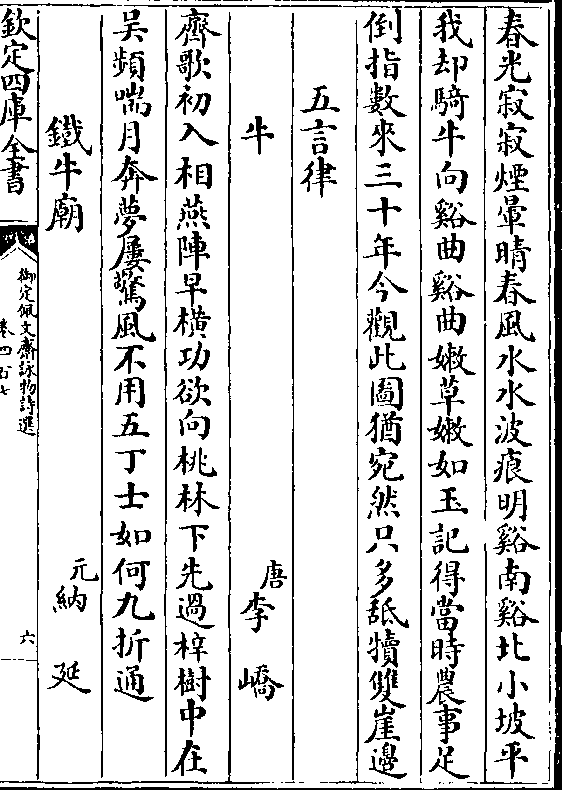 春光寂寂煙暈晴春風水水波痕明谿南谿北小坡平
我却騎牛向谿曲谿曲嫩草嫩如玉記得當時農事足
倒指數來三十年今觀此圖猶宛然只多舐犢雙崖邊
五言律
牛 唐李嶠
齊歌初入相燕陣早横功欲向桃林下先過梓樹中在
吴頻喘月奔夢屢驚風不用五丁士如何九折通
鐵牛廟 元納延
欽定四庫全書
御定佩文齋詠物詩選
卷四百七
六